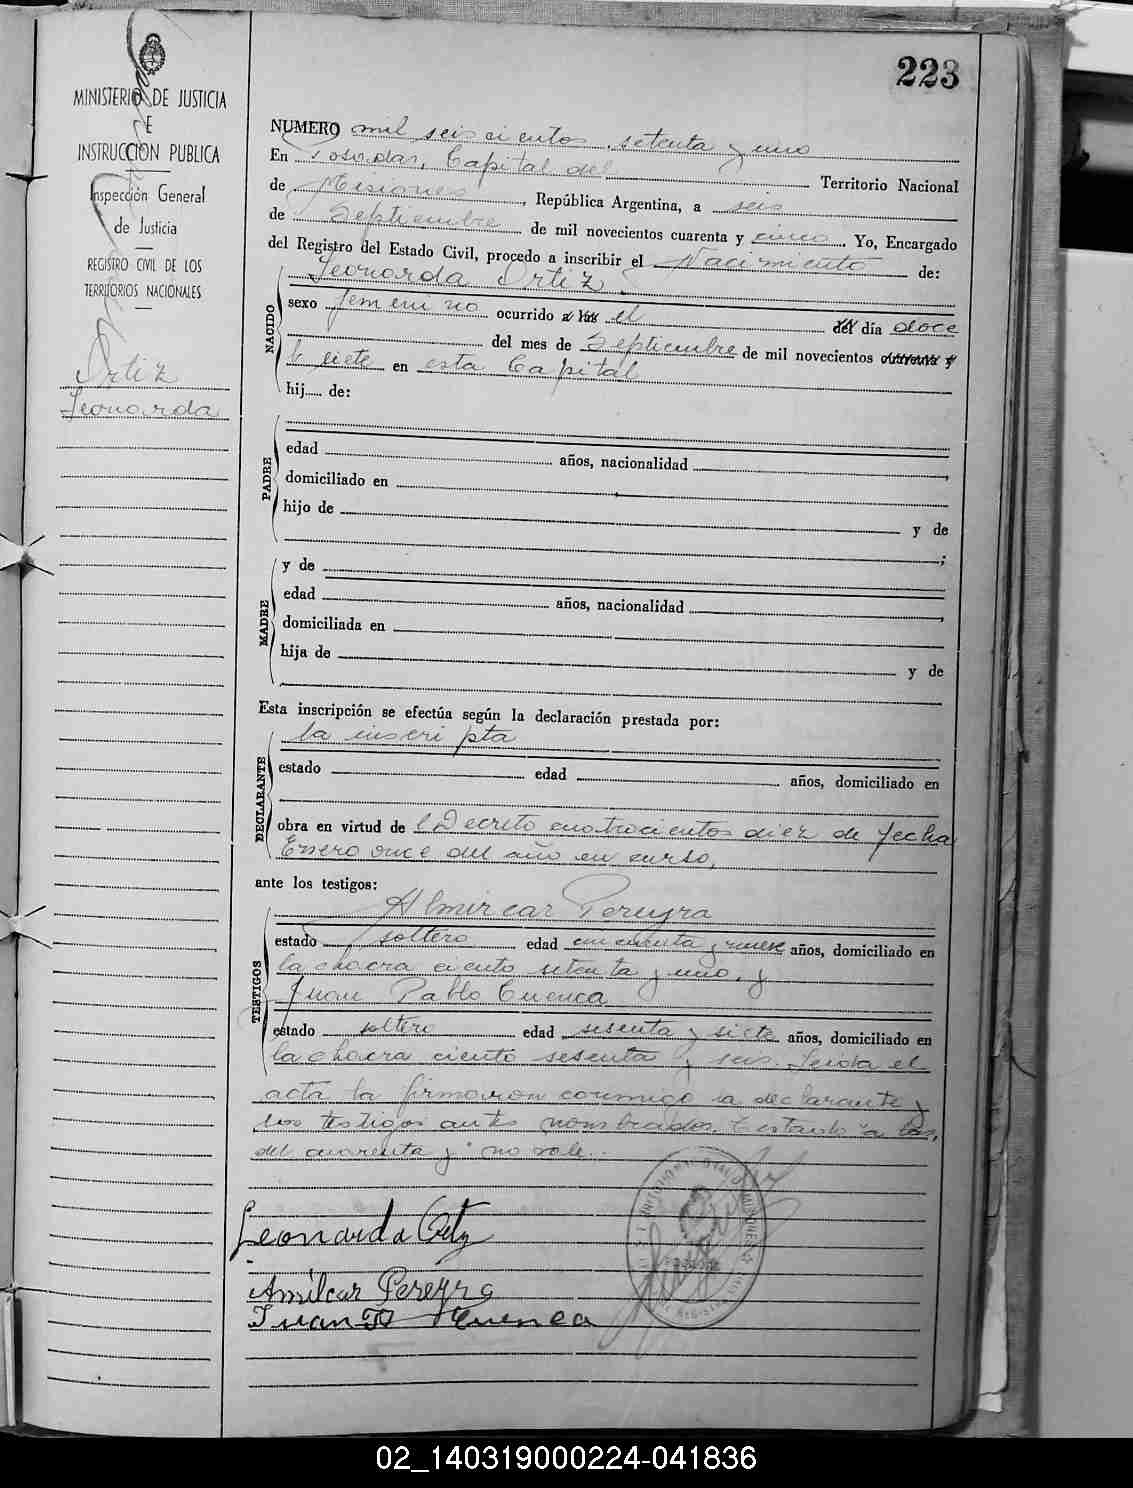 223
MINISTERIO DE JUSTICIA
E
INSTRUCCION PUBLICA
Inspección General
de Justicia
REGISTRO CIVIL DE LOS
TERRITORIOS NACIONALES
Ortiz
Leonarda
NUMERO mil seis cientos setenta y uno
En Posadas, Capital del Territorio Nacional
de Misiones, República Argentina, a seis
de Septiembre de mil novecientos cuarenta y cinco. Yo, Encargado
del Registro del Estado Civil, procedo a inscribir el Nacimiento de:
NACIDO
Leonarda Ortiz
sexo femenino ocurrido a las el del día doce
del mes de Septiembre de mil novecientos cuarenta y
siete en esta Capital
hij..... de:
PADRE
edad años, nacionalidad
domiciliado en
hijo de y de
;
MADRE
y de
edad años, nacionalidad
domiciliada en
hija de y de
Esta inscripción se efectúa según la declaración prestada por:
DECLARANTE
la inscripta
estado edad años, domiciliado en
obra en virtud de l Decreto cuatrocientos diez de fecha
Enero once del año en curso,
ante los testigos:
TESTIGOS
Almircar Pereyra
estado soltero edad cincuenta y nueve años, domiciliado en
la chacra ciento setenta y uno, y
Juan Pablo Cuenca
estado soltero edad sesenta y siete años, domiciliado en
la chacra ciento sesenta y seis. Leida el
acta la firmaron conmigo la declarante y
los testigos antes nombrados. Testado "a las,
del cuarenta y" no vale.
Leonarda Ortiz
Amilcar Pereyra
Juan P Cuenca
02_140319000224-041836